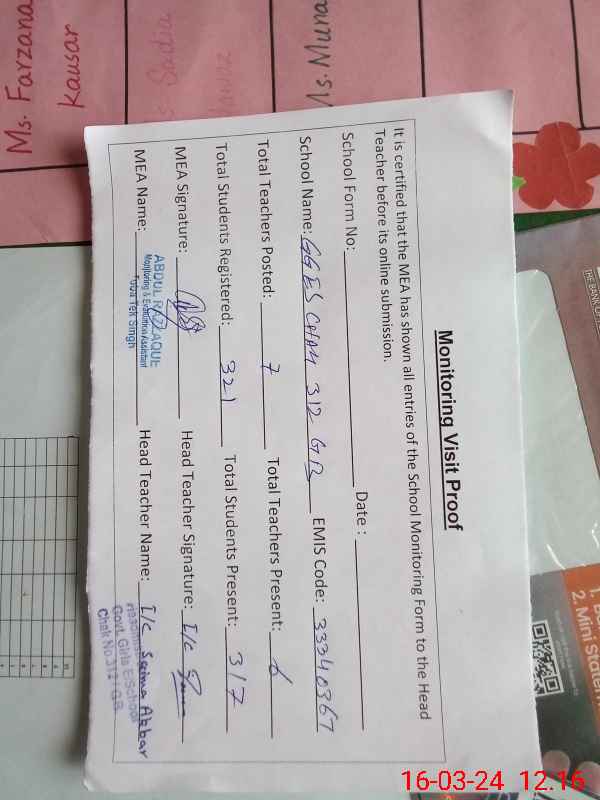 Monitoring Visit Proof
It is certified that the MEA has shown all entries of the School Monitoring Form to the Head
Teacher before its online submission.
School Form No: Date :
School Name: GGES CHAK 312 GB EMIS Code: 33340367
Total Teachers Posted: 7 Total Teachers Present: 6
Total Students Registered: 321 Total Students Present: 317
MEA Signature: Head Teacher Signature: I/c
MEA Name: Head Teacher Name: I/c Saima Abbar
ABDUL RAZZAQUE
Monitoring & Evaluation Assistant
Toba Tek Singh
Headmistress
Govt. Girls E/School
Chak No.312 / GB
Ms. Farzana
Kausar
Sadia
Ms. Muna
THE BANK OF
1.
2. Mini Statem
16-03-24 12.16